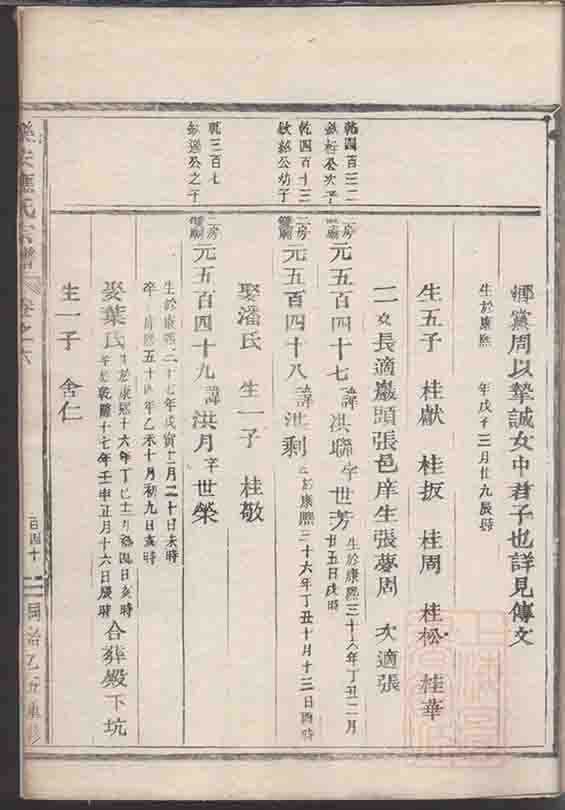 鄉黨周以摯誠女中君子也詳見傳文
生於康熙 年戊子三月廿九辰時
生五子 桂獻 桂扳 桂周 桂松 桂華
二女長適巖頭張邑庠生張夢周 次適張
乾四百三二
欽極公次子
二房
元五百四十七諱洪聯字世芳
生於康熙三十六年丁丑二月
廿五日戌時
乾四百十三
欽銘公幼子
二房
元五百四十八諱洪剩
生於康熙三十六年丁丑十月十三日酉時
娶潘氏 生一子 桂敬
乾三百七
公之子
二房
元五百四十九諱洪月字世榮
生於康熙三十七年戊寅十二月二十日未時
卒於康熙五十四年乙未十月初九日亥時
娶葉氏
生於康熙十六年丁巳十月初四日亥時
卒於乾隆十七年壬申正月十六日辰時
合葬殿下坑
生一子 舍仁
應氏宗譜
卷之六
百四十
同治乙丑重修